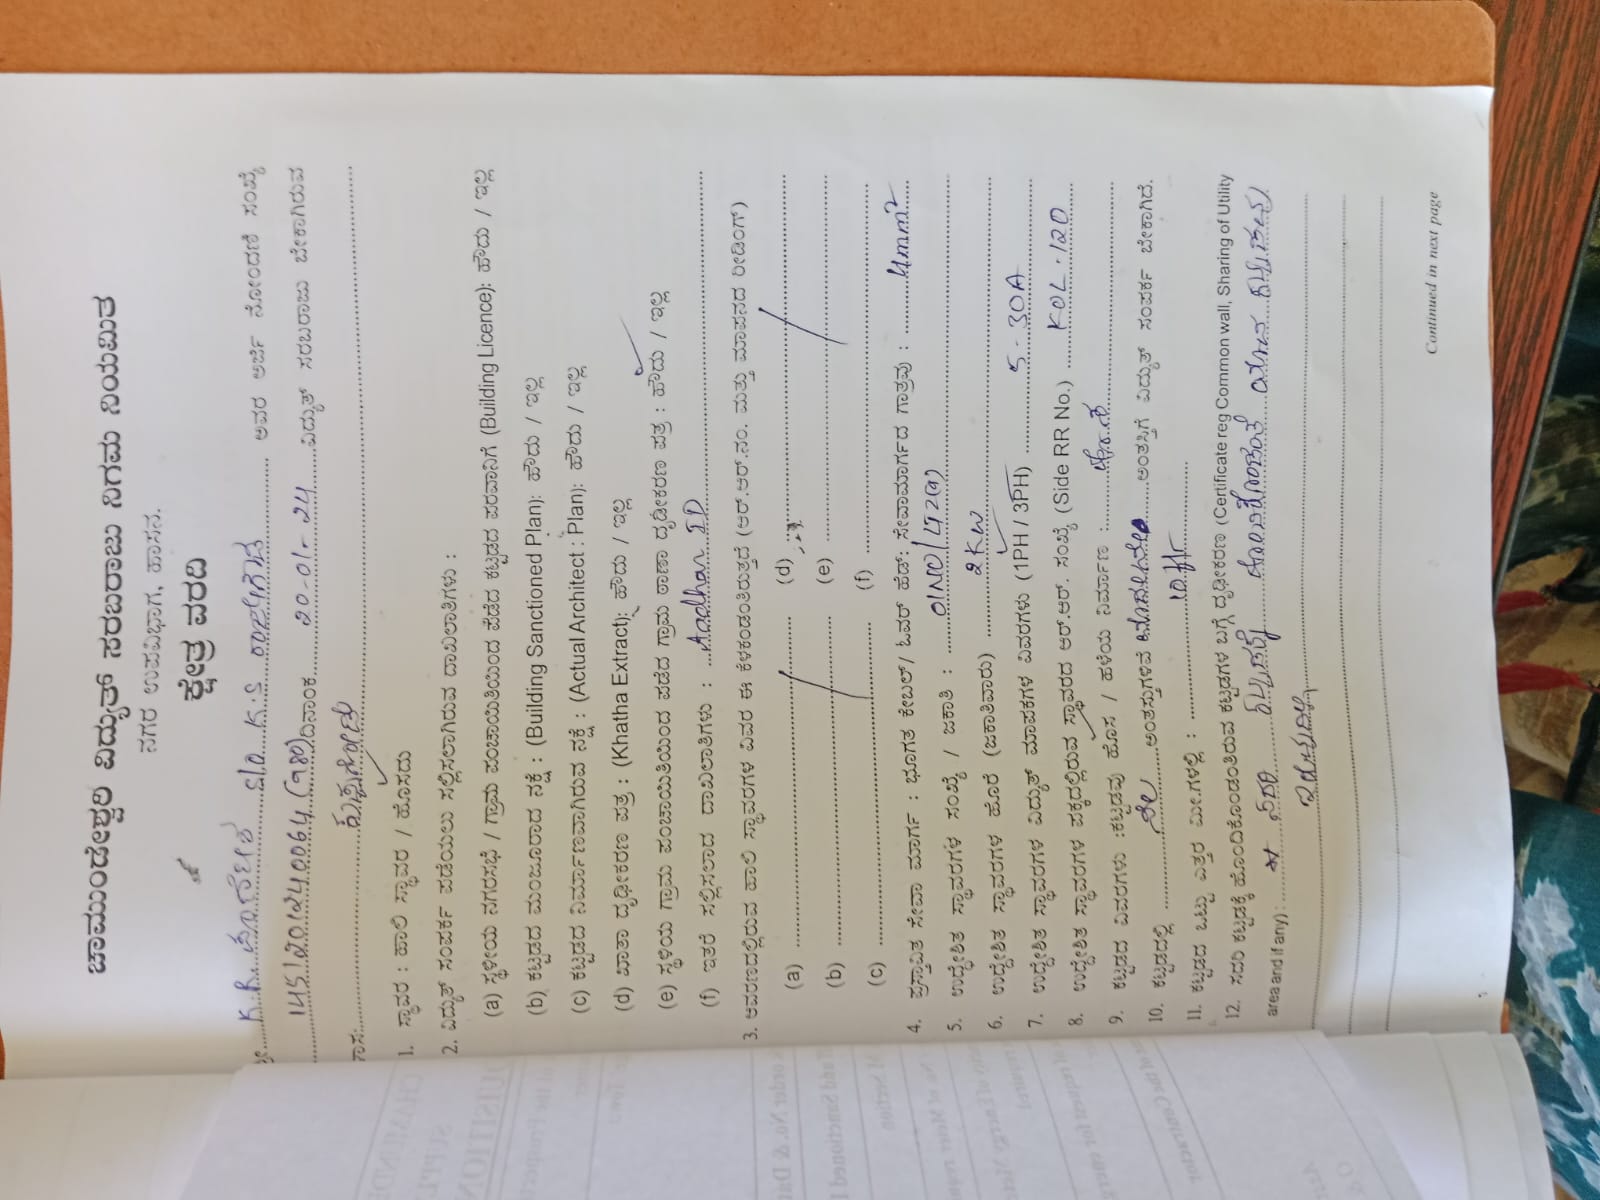 ಚಾಮುಂಡೇಶ್ವರಿ ವಿದ್ಯುತ್ ಸರಬರಾಜು ನಿಗಮ ನಿಯಮಿತ
ನಗರ ಉಪವಿಭಾಗ, ಹಾಸನ.
ಕ್ಷೇತ್ರ ವರದಿ
ಶ್ರೀ..... K.R. S/o. K.S ..... ಅವರ ಅರ್ಜಿ ನೋಂದಣಿ ಸಂಖ್ಯೆ
145/201240064 ..... ದಿನಾಂಕ..... 20-01-24 ..... ವಿದ್ಯುತ್ ಸರಬರಾಜು ಬೇಕಾಗಿರುವ
1. ಸ್ಥಾವರ : ಹಾಲಿ ಸ್ಥಾವರ / ಹೊಸದು
2. ವಿದ್ಯುತ್ ಸಂಪರ್ಕ ಪಡೆಯಲು ಸಲ್ಲಿಸಲಾಗಿರುವ ದಾಖಲಾತಿಗಳು :
(a) ಸ್ಥಳೀಯ ನಗರಸಭೆ / ಗ್ರಾಮ ಪಂಚಾಯಿತಿಯಿಂದ ಪಡೆದ ಕಟ್ಟಡದ ಪರವಾನಿಗೆ (Building Licence): ಹೌದು / ಇಲ್ಲ
(b) ಕಟ್ಟಡದ ಮಂಜೂರಾದ ನಕ್ಷೆ : (Building Sanctioned Plan): ಹೌದು / ಇಲ್ಲ
(c) ಕಟ್ಟಡದ ನಿರ್ಮಾಣವಾಗಿರುವ ನಕ್ಷೆ : (Actual Architect : Plan): ಹೌದು / ಇಲ್ಲ
(d) ಖಾತಾ ದೃಢೀಕರಣ ಪತ್ರ : (Khatha Extract): ಹೌದು / ಇಲ್ಲ
(e) ಸ್ಥಳಿಯ ಗ್ರಾಮ ಪಂಚಾಯಿತಿಯಿಂದ ಪಡೆದ ಗ್ರಾಮ ಠಾಣಾ ದೃಢೀಕರಣ ಪತ್ರ : ಹೌದು / ಇಲ್ಲ
(f) ಇತರೆ ಸಲ್ಲಿಸಲಾದ ದಾಖಲಾತಿಗಳು : ..... Aadhar ID .....
3. ಆವರಣದಲ್ಲಿರುವ ಹಾಲಿ ಸ್ಥಾವರಗಳ ವಿವರ ಈ ಕೆಳಕಂಡಂತಿರುತ್ತದೆ (ಆರ್.ಆರ್.ನಂ. ಮತ್ತು ಮಾಪನದ ರೀಡಿಂಗ್)
(a) ..... (d) .....
(b) ..... (e) .....
(c) ..... (f) .....
4. ಪ್ರಸ್ತಾವಿತ ಸೇವಾ ಮಾರ್ಗ : ಭೂಗತ ಕೇಬಲ್/ ಓವರ್ ಹೆಡ್: ಸೇವಾಮಾರ್ಗದ ಗಾತ್ರವು : ..... 4mm²
5. ಉದ್ದೇಶಿತ ಸ್ಥಾವರಗಳ ಸಂಖ್ಯೆ / ಜಕಾತಿ : ..... 01NO/LT2(a) .....
6. ಉದ್ದೇಶಿತ ಸ್ಥಾವರಗಳ ಹೊರೆ (ಜಕಾತಿವಾರು) ..... 2KW .....
7. ಉದ್ದೇಶಿತ ಸ್ಥಾವರಗಳ ವಿದ್ಯುತ್ ಮಾಪಕಗಳ ವಿವರಗಳು (1PH / 3PH) ..... 5-30A .....
8. ಉದ್ದೇಶಿತ ಸ್ಥಾವರಗಳ ಪಕ್ಕದಲ್ಲಿರುವ ಸ್ಥಾವರದ ಆರ್.ಆರ್. ಸಂಖ್ಯೆ (Side RR No.) ..... KOL.120 .....
9. ಕಟ್ಟಡದ ವಿವರಗಳು :ಕಟ್ಟಡವು ಹೊಸ / ಹಳೆಯ ನಿರ್ಮಾಣ : .....
10. ಕಟ್ಟಡದಲ್ಲಿ ..... ಅಂತಸ್ತುಗಳಿವೆ ..... ಅಂತಸ್ತಿಗೆ ವಿದ್ಯುತ್ ಸಂಪರ್ಕ ಬೇಕಾಗಿದೆ.
11. ಕಟ್ಟಡದ ಒಟ್ಟು ಎತ್ತರ ಮೀ.ಗಳಲ್ಲಿ : .....
12. ಸದರಿ ಕಟ್ಟಡಕ್ಕೆ ಹೊಂದಿಕೊಂಡಂತಿರುವ ಕಟ್ಟಡಗಳ ಬಗ್ಗೆ ದೃಢೀಕರಣ (Certificate reg Common wall, Sharing of Utility
area and if any): ..... ಸದರಿ ಕಟ್ಟಡಕ್ಕೆ ಹೊಂದಿಕೊಂಡಂತೆ ಯಾವ ಕಟ್ಟಡವು
ಇರುವುದಿಲ್ಲ
Continued in next page